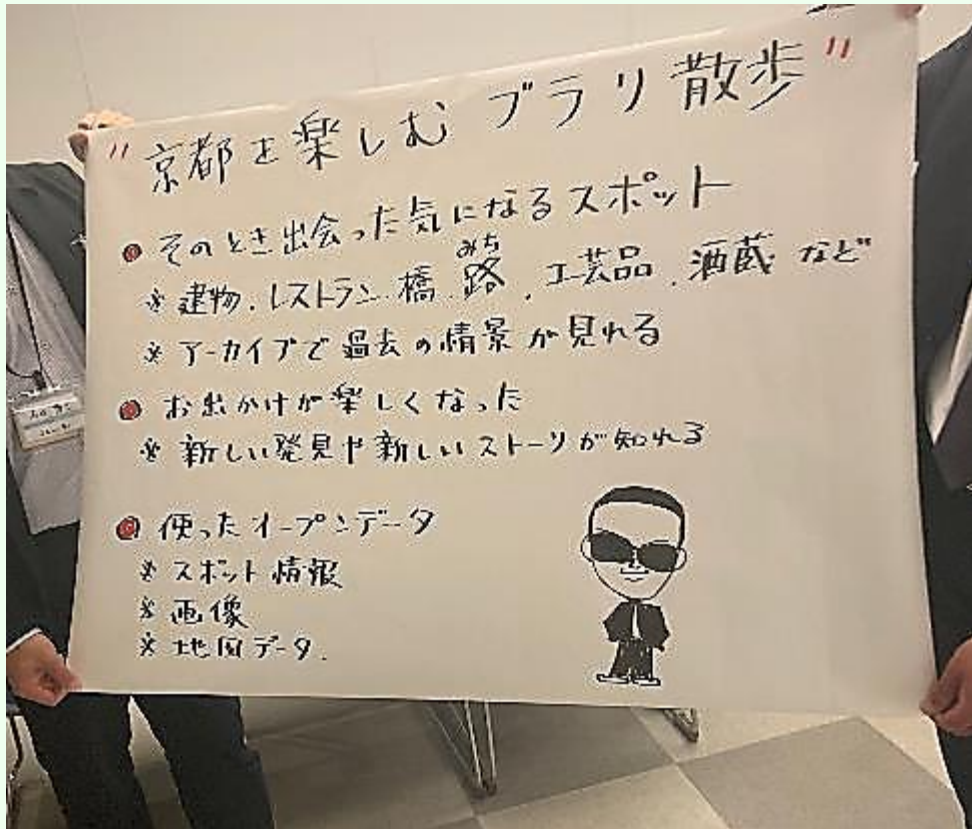 "京都を楽しむブラリ散歩"
● そのとき出会った気になるスポット
※ 建物、レストラン、橋、路(みち)、工芸品、酒蔵 など
※ アーカイブで過去の情景が見れる
● お出かけが楽しくなった
※ 新しい発見や新しいストーリが知れる
● 使ったオープンデータ
※ スポット情報
※ 画像
※ 地図データ.